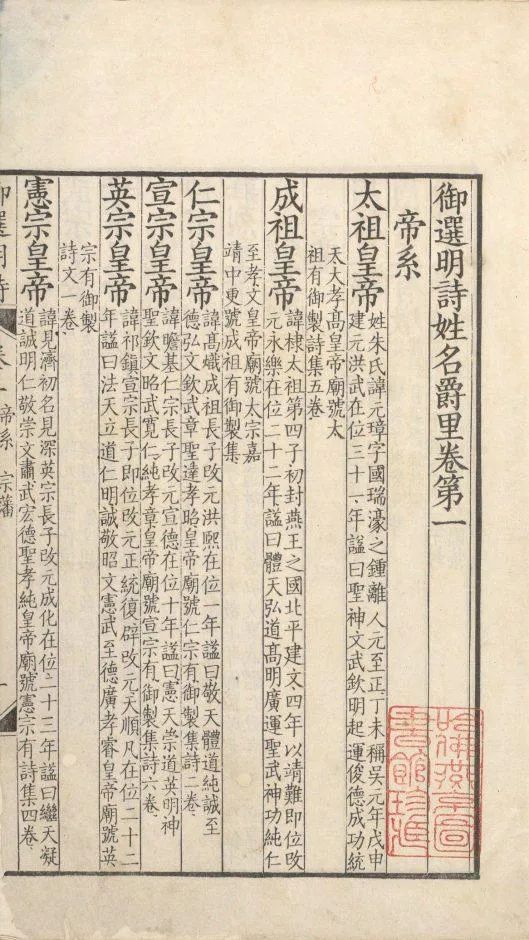 御選明詩姓名爵里卷第一
帝系
太祖皇帝
姓朱氏諱元璋字國瑞濠之鍾離人元至正丁未稱吳元年戊申
建元洪武在位三十一年謚曰聖神文武欽明起運俊德成功統
天大孝高皇帝廟號太
祖有御製詩集五卷
成祖皇帝
諱棣太祖第四子初封燕王之國北平建文四年以靖難即位改
元永樂在位二十二年謚曰體天弘道高明廣運聖武神功純仁
至孝文皇帝廟號太宗嘉
靖中更號成祖有御製集
仁宗皇帝
諱高熾成祖長子改元洪熙在位一年謚曰敬天體道純誠至
德弘文欽武章聖達孝昭皇帝廟號仁宗有御製集詩二卷
宣宗皇帝
諱瞻基仁宗長子改元宣德在位十年謚曰憲天崇道英明神
聖欽文昭武寬仁純孝章皇帝廟號宣宗有御製集詩六卷
英宗皇帝
諱祁鎮宣宗長子即位改元正統復辟改元天順凡在位二十二
年謚曰法天立道仁明誠敬昭文憲武至德廣孝睿皇帝廟號英
宗有御製
詩文一卷
憲宗皇帝
諱見濟初名見深英宗長子改元成化在位二十三年謚曰繼天凝
道誠明仁敬崇文肅武宏德聖孝純皇帝廟號憲宗有詩集四卷
御選明詩 卷一 帝系 宗藩 一
哈佛燕京圖
書館珍藏